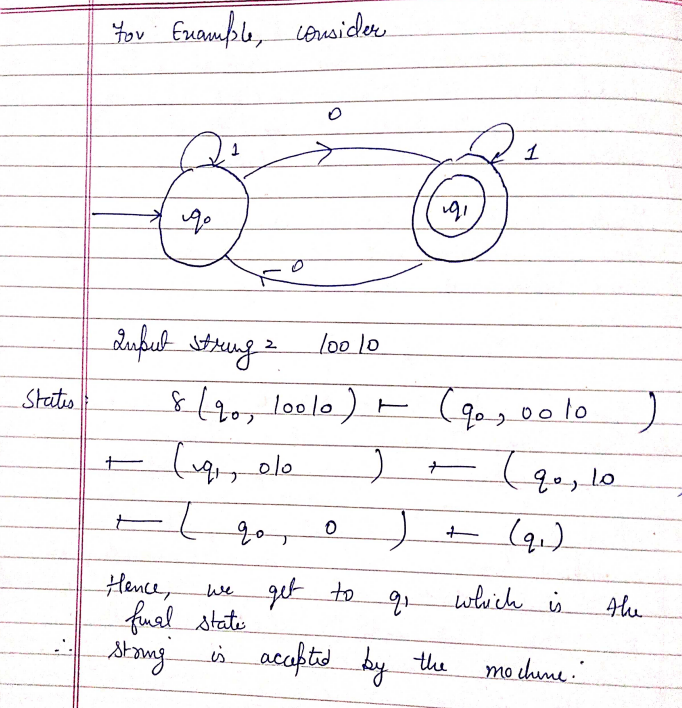 For Example, consider
0
1
1
q0
q1
0
Input string = 10010
States: δ(q0, 10010) ⊢ (q0, 0010)
⊢ (q1, 010) ⊢ (q0, 10
⊢ (q0, 0) ⊢ (q1)
Hence, we get to q1 which is the
final state
∴ string is accepted by the machine.